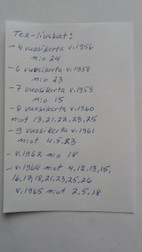 Tex-liuskat:
- 4 vuosikerta v. 1956
n:o 24
- 6 vuosikerta v. 1958
n:o 23
- 7 vuosikerta v. 1959
n:o 15
- 8 vuosikerta v. 1960
n:ot 13, 21, 22, 23, 25
- 9 vuosikerta v. 1961
n:ot 4, 5, 23
- v. 1962 n:o 18
- v. 1964 n:ot 4, 12, 13, 15,
16, 17, 18, 21, 23, 25, 26
v. 1965 n:ot 2, 5, 18